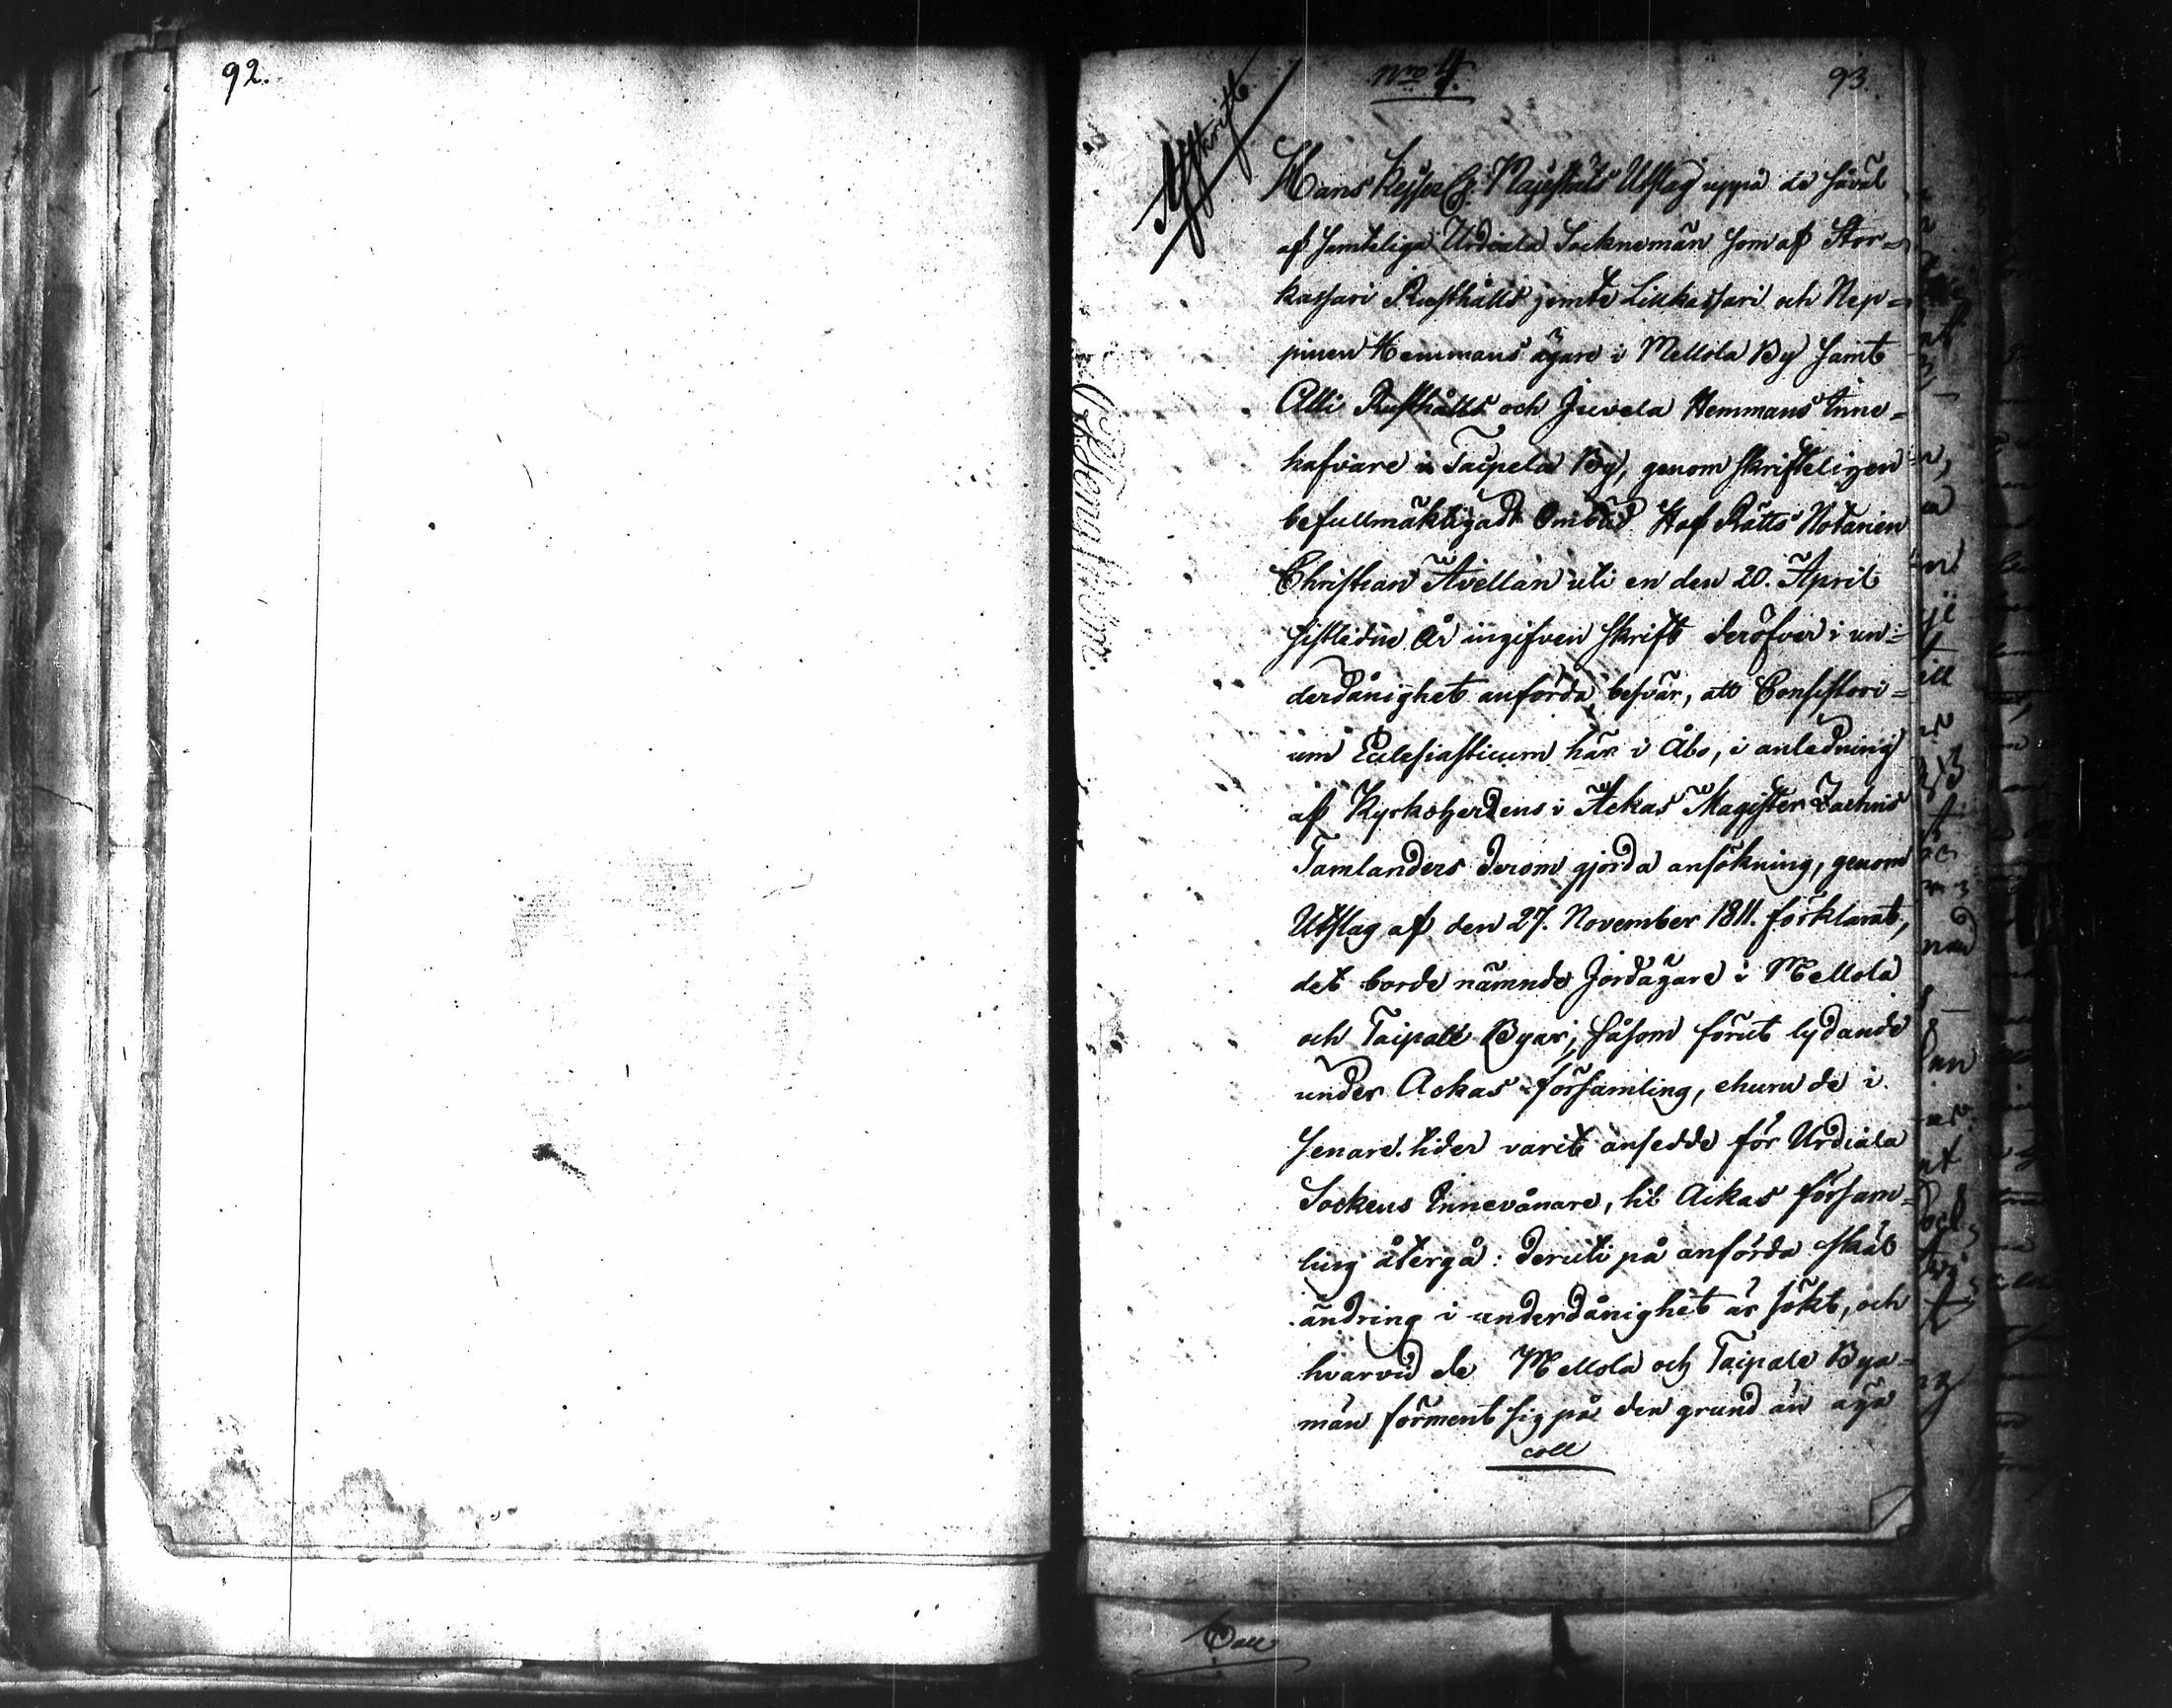 92.
Nro 4.
93.
Afskrift
Hans Kejserlig. Majestäts Utslag uppå de såväl
af samteliga Urdiala Socknemän som af Stor-
kassari Rusthålls jemte Lillkassari och Nep-
pinen Hemmans ägare i Mellola By samt
Alli Rusthålls och Juvela Hemmans Inne-
hafvare i Taipela By, genom skrifteligen
befullmäktigadt Ombud Hof Rätts Notarien
Christian Avellan uti en den 20. April
sistledne År ingifven skrift deröfver i un-
derdånighet anförda besvär, att Consistori-
um Eclesiasticum här i Åbo, i anledning
af Kyrkoherdens i Ackas Magister Zachris
Tamlanders derom gjorda ansökning, genom
Utslag af den 27. November 1811. förklarat,
det borde nämnde Jordägare i Mellola
och Taipale Byar, såsom förut lydande
under Ackas församling, ehuru de i
senare tider varit ansedde för Urdiala
Sockens Innevånare, til Ackas försam-
ling återgå: deruti på anförda skäl
ändring i underdånighet är sökt, och
hvarvid de Mellola och Taipale Bya-
män förment sig på den grund än äga
coll
Coll